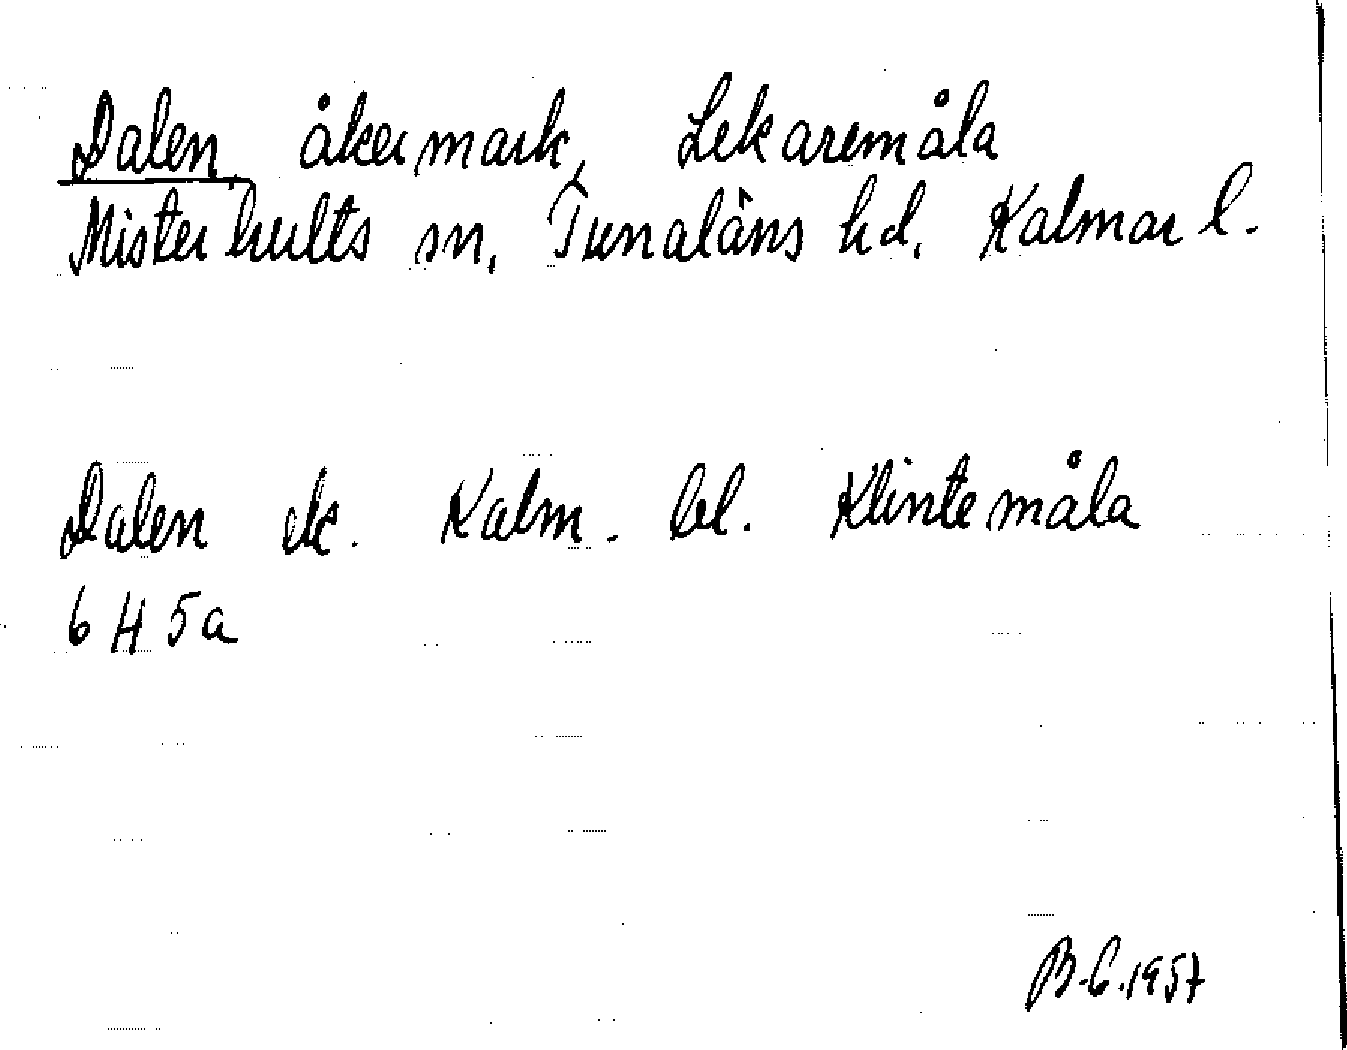 Dalen, åkermark, Lekaremåla
Misterhults sn, Tunaläns hd, Kalmar l.
Dalen ek. Kalm. bl. Klintemåla
6 H 5a
B.C.1957